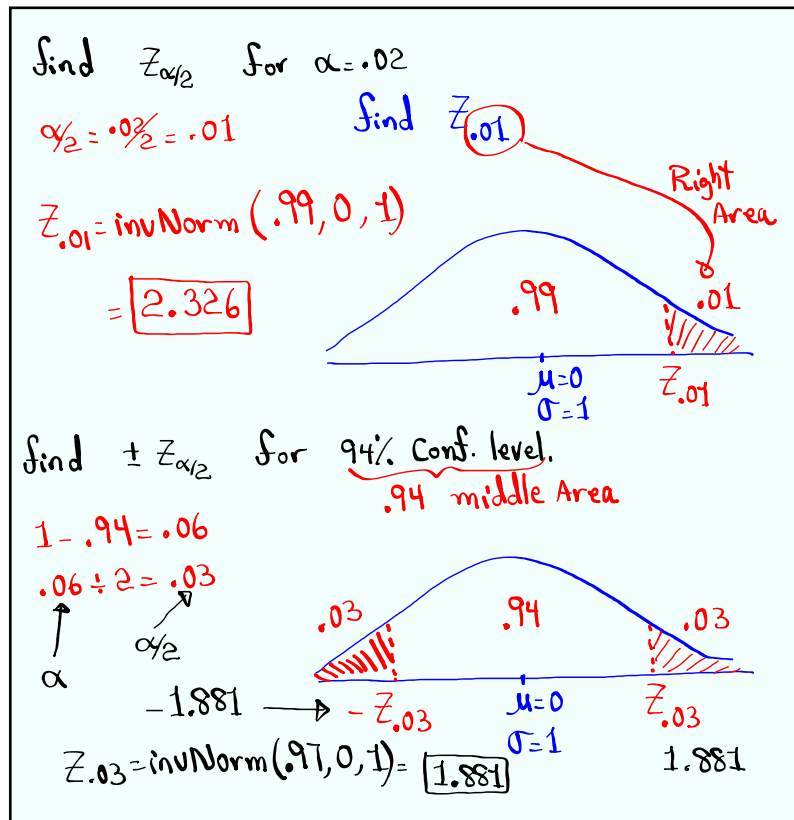 find Zα/2 for α=.02
α/2 = .02/2 = .01
find Z.01
Right
Area
Z.01 = invNorm(.99, 0, 1)
= 2.326
.99
.01
μ=0
σ=1
Z.01
find ± Zα/2 for 94% Conf. level.
.94 middle Area
1 - .94 = .06
.06 ÷ 2 = .03
α
α/2
.03
.94
.03
-1.881 → - Z.03
μ=0
σ=1
Z.03
1.881
Z.03 = invNorm(.97, 0, 1) = 1.881